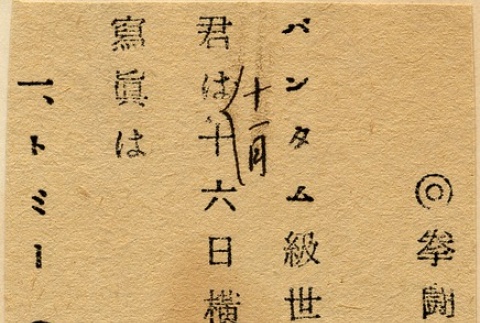 ◎拳闘
バンタム級世
君は十一月十六日横
寫眞は
一、トミー